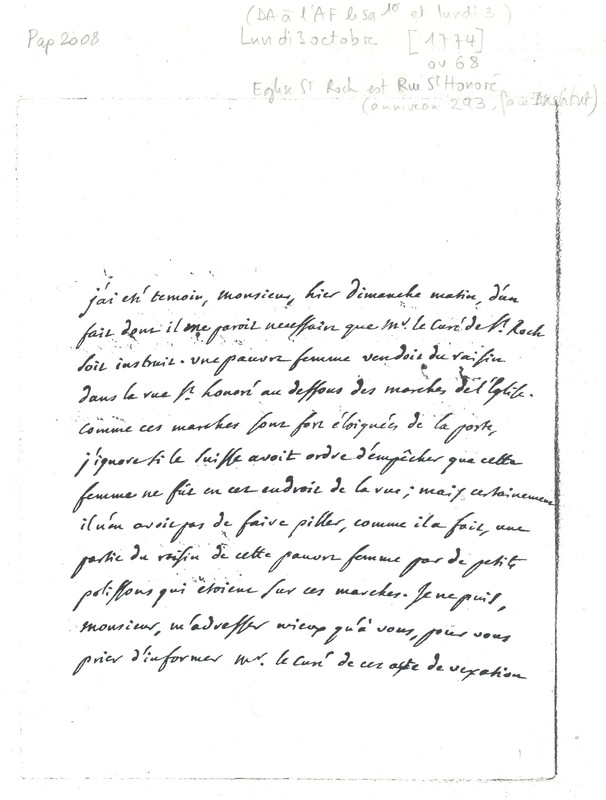 (DA à l'AF le sa 10 et lundi 3)
Pap 2008
Lundi 3 octobre [1774]
ou 68
Eglise St Roch est Rue St Honoré
(anniveau 293, face Institut)
j'ai eté temoin, monsieur, hier dimanche matin, d'un
fait dont il me paroit necessaire que Mr. le Curé de St. Roch
soit instruit. une pauvre femme vendoit du raisin
dans la rue St. honoré au dessous des marches de l'Eglise.
comme ces marches sont fort éloignées de la porte,
j'ignore si le suisse avoit ordre d'empêcher que cette
femme ne fût en cet endroit de la rue; mais certainement
il n'en avoit pas de faire piller, comme il a fait, une
partie du raisin de cette pauvre femme par de petits
polissons qui étoient sur ces marches. Je ne puis,
monsieur, m'adresser mieux qu'à vous, pour vous
prier d'informer Mr. le Curé de cet acte de vexation